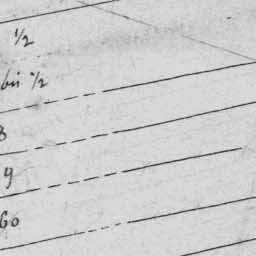 1/2
bis 1/2
8
9
60